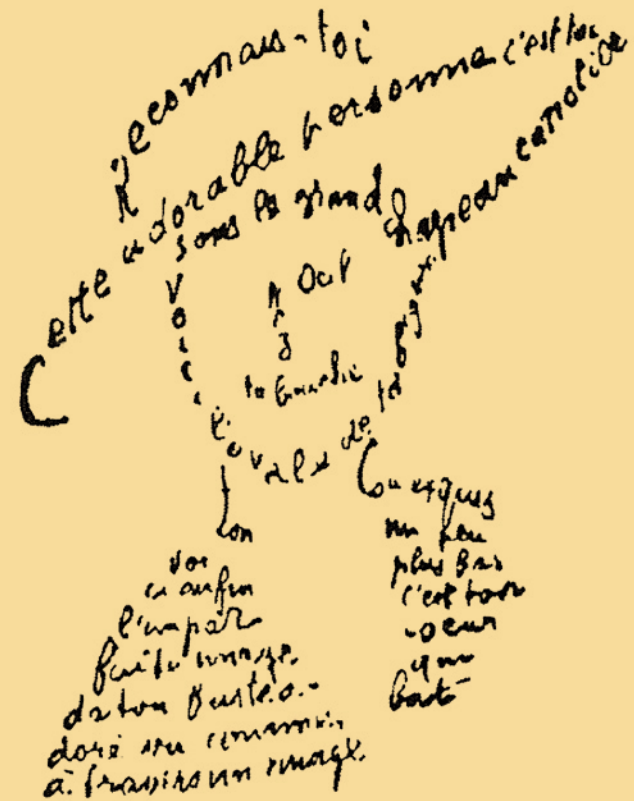 Reconnais-toi
Cette adorable personne c'est toi
sous le grand chapeau canotier
Oeil
Nez
ta bouche
Voici l'ovale de ta figure
Ton
Cou exquis
voi
ci enfin
l'impar
faite image
de ton buste a-
doré vu comme
à travers un nuage
un peu
plus bas
c'est ton
coeur
qui
bat